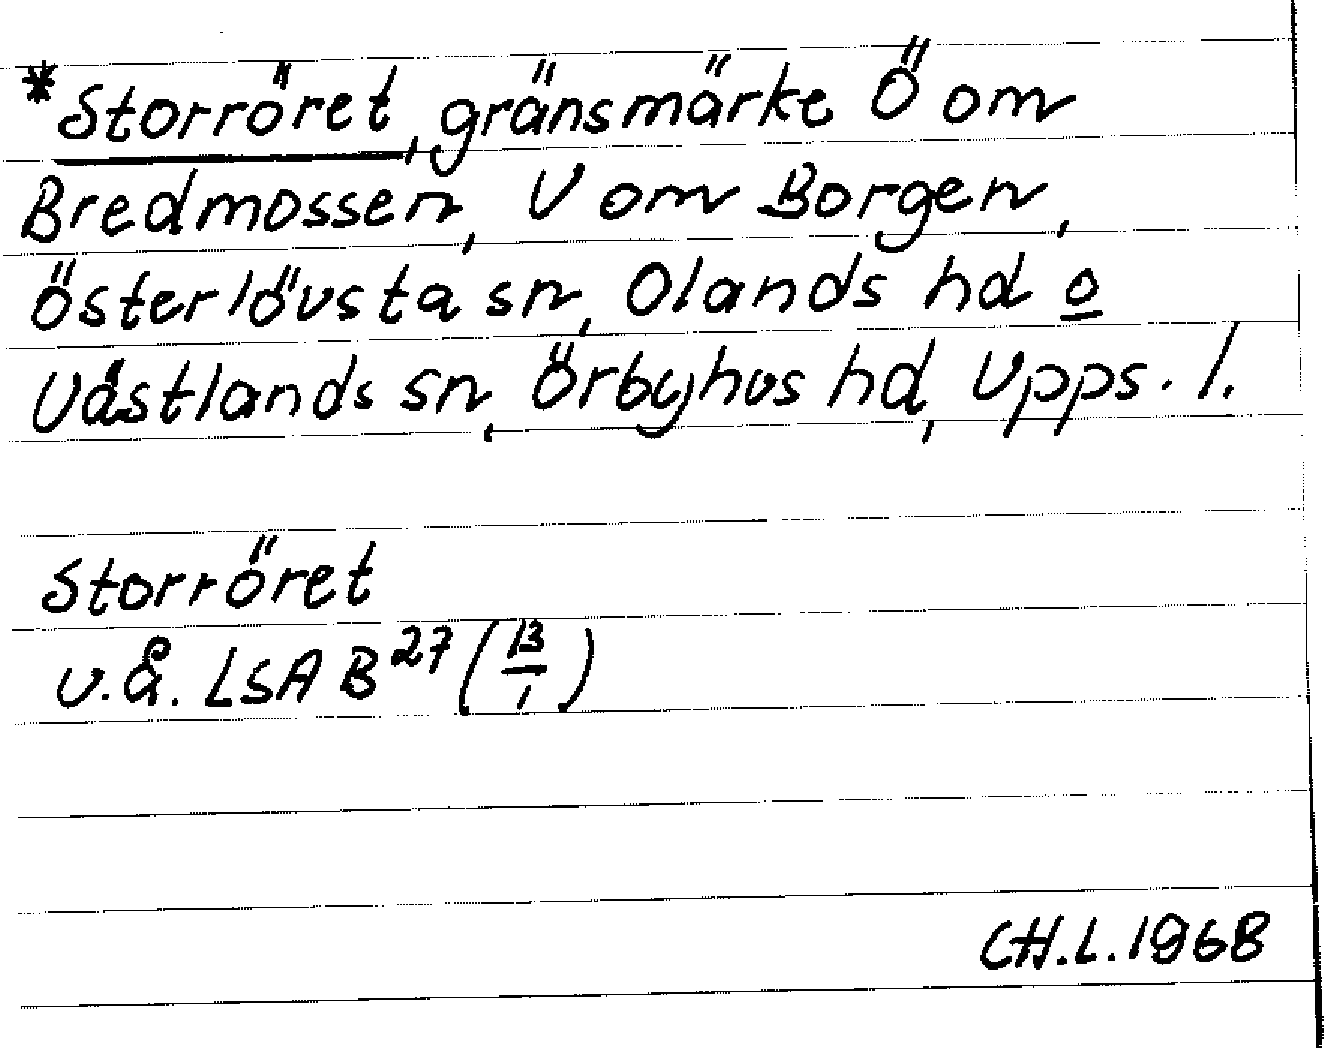 *Storröret, gränsmärke Ö om
Bredmossen, V om Borgen,
Österlövsta sn, Olands hd o
Västlands sn, Örbyhus hd, Upps. l.
Storröret
u.å. LSA B 27 (13/1)
CH.L. 1968